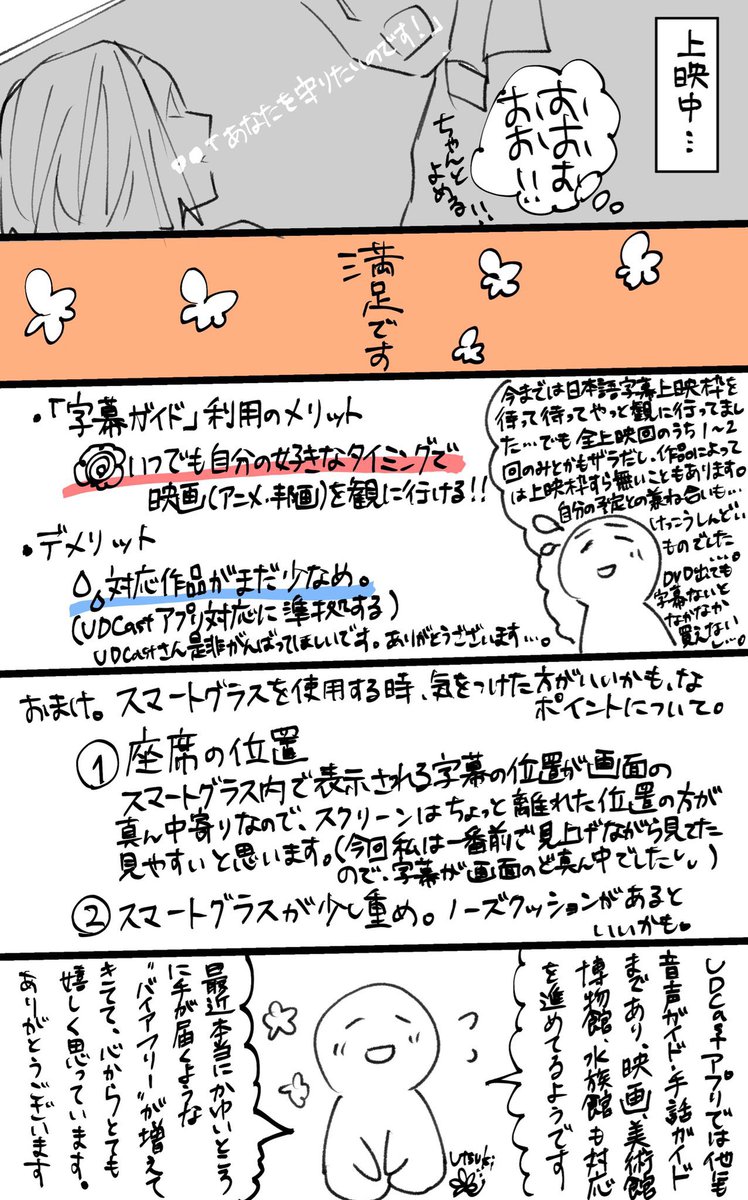 上映中…
おおお
おお!!
ちゃんと
よめる!!
●●「あなたを守りたいのです!」
満足です
・「字幕ガイド」利用のメリット
いつでも自分の好きなタイミングで
映画(アニメ・邦画)を観に行ける!!
・デメリット
対応作品がまだ少なめ。
(UDCastアプリ対応に準拠する)
UDCastさん是非がんばってほしいです。ありがとうございます…。
今までは日本語字幕上映枠を
待って待ってやっと観に行ってまし
た…でも全上映回のうち1〜2
回のみとかもザラだし、作品によって
は上映枠すら無いこともあります。
自分の予定との兼ね合いも…
けっこうしんどい
ものでした
…。
DVD出ても
字幕ないと
なかなか
買えない
し…。
おまけ。スマートグラスを使用する時、気をつけた方がいいかも、な
ポイントについて。
① 座席の位置
スマートグラス内で表示される字幕の位置が画面の
真ん中寄りなので、スクリーンはちょっと離れた位置の方が
見やすいと思います。(今回私は一番前で見上げながら見てた
ので、字幕が画面のど真ん中でした)
② スマートグラスが少し重め。ノーズクッションがあると
いいかも。
UDCastアプリでは他にも
音声ガイド・手話ガイド
まであり、映画、美術館
博物館、水族館も対応
を進めてるようです
最近本当にかゆいところ
に手が届くような
"バイアフリー"が増えて
きてて、心からとても
嬉しく思っています。
ありがとうございます
utsuki